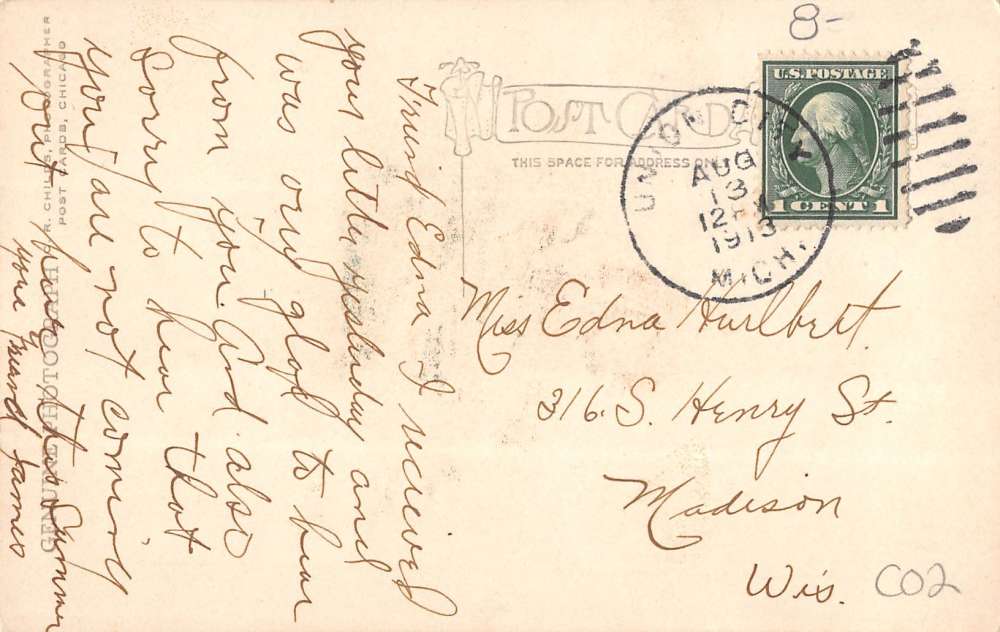 8-
U.S. POSTAGE
1 CENT 1
POST CARD
THIS SPACE FOR ADDRESS ONLY
UNION CITY
AUG
13
12
1913
MICH.
Miss Edna Hurlbert.
316. S. Henry St.
Madison
Wis.
CO2
Friend Edna I recieved
your letter yesterday and
was very glad to hear
from you. And also
Sorry to hear that
you are not coming
this Summer
your friend James
R. CHILDS, PHOTOGRAPHER
POST CARDS, CHICAGO
GENUINE PHOTOGRAPH